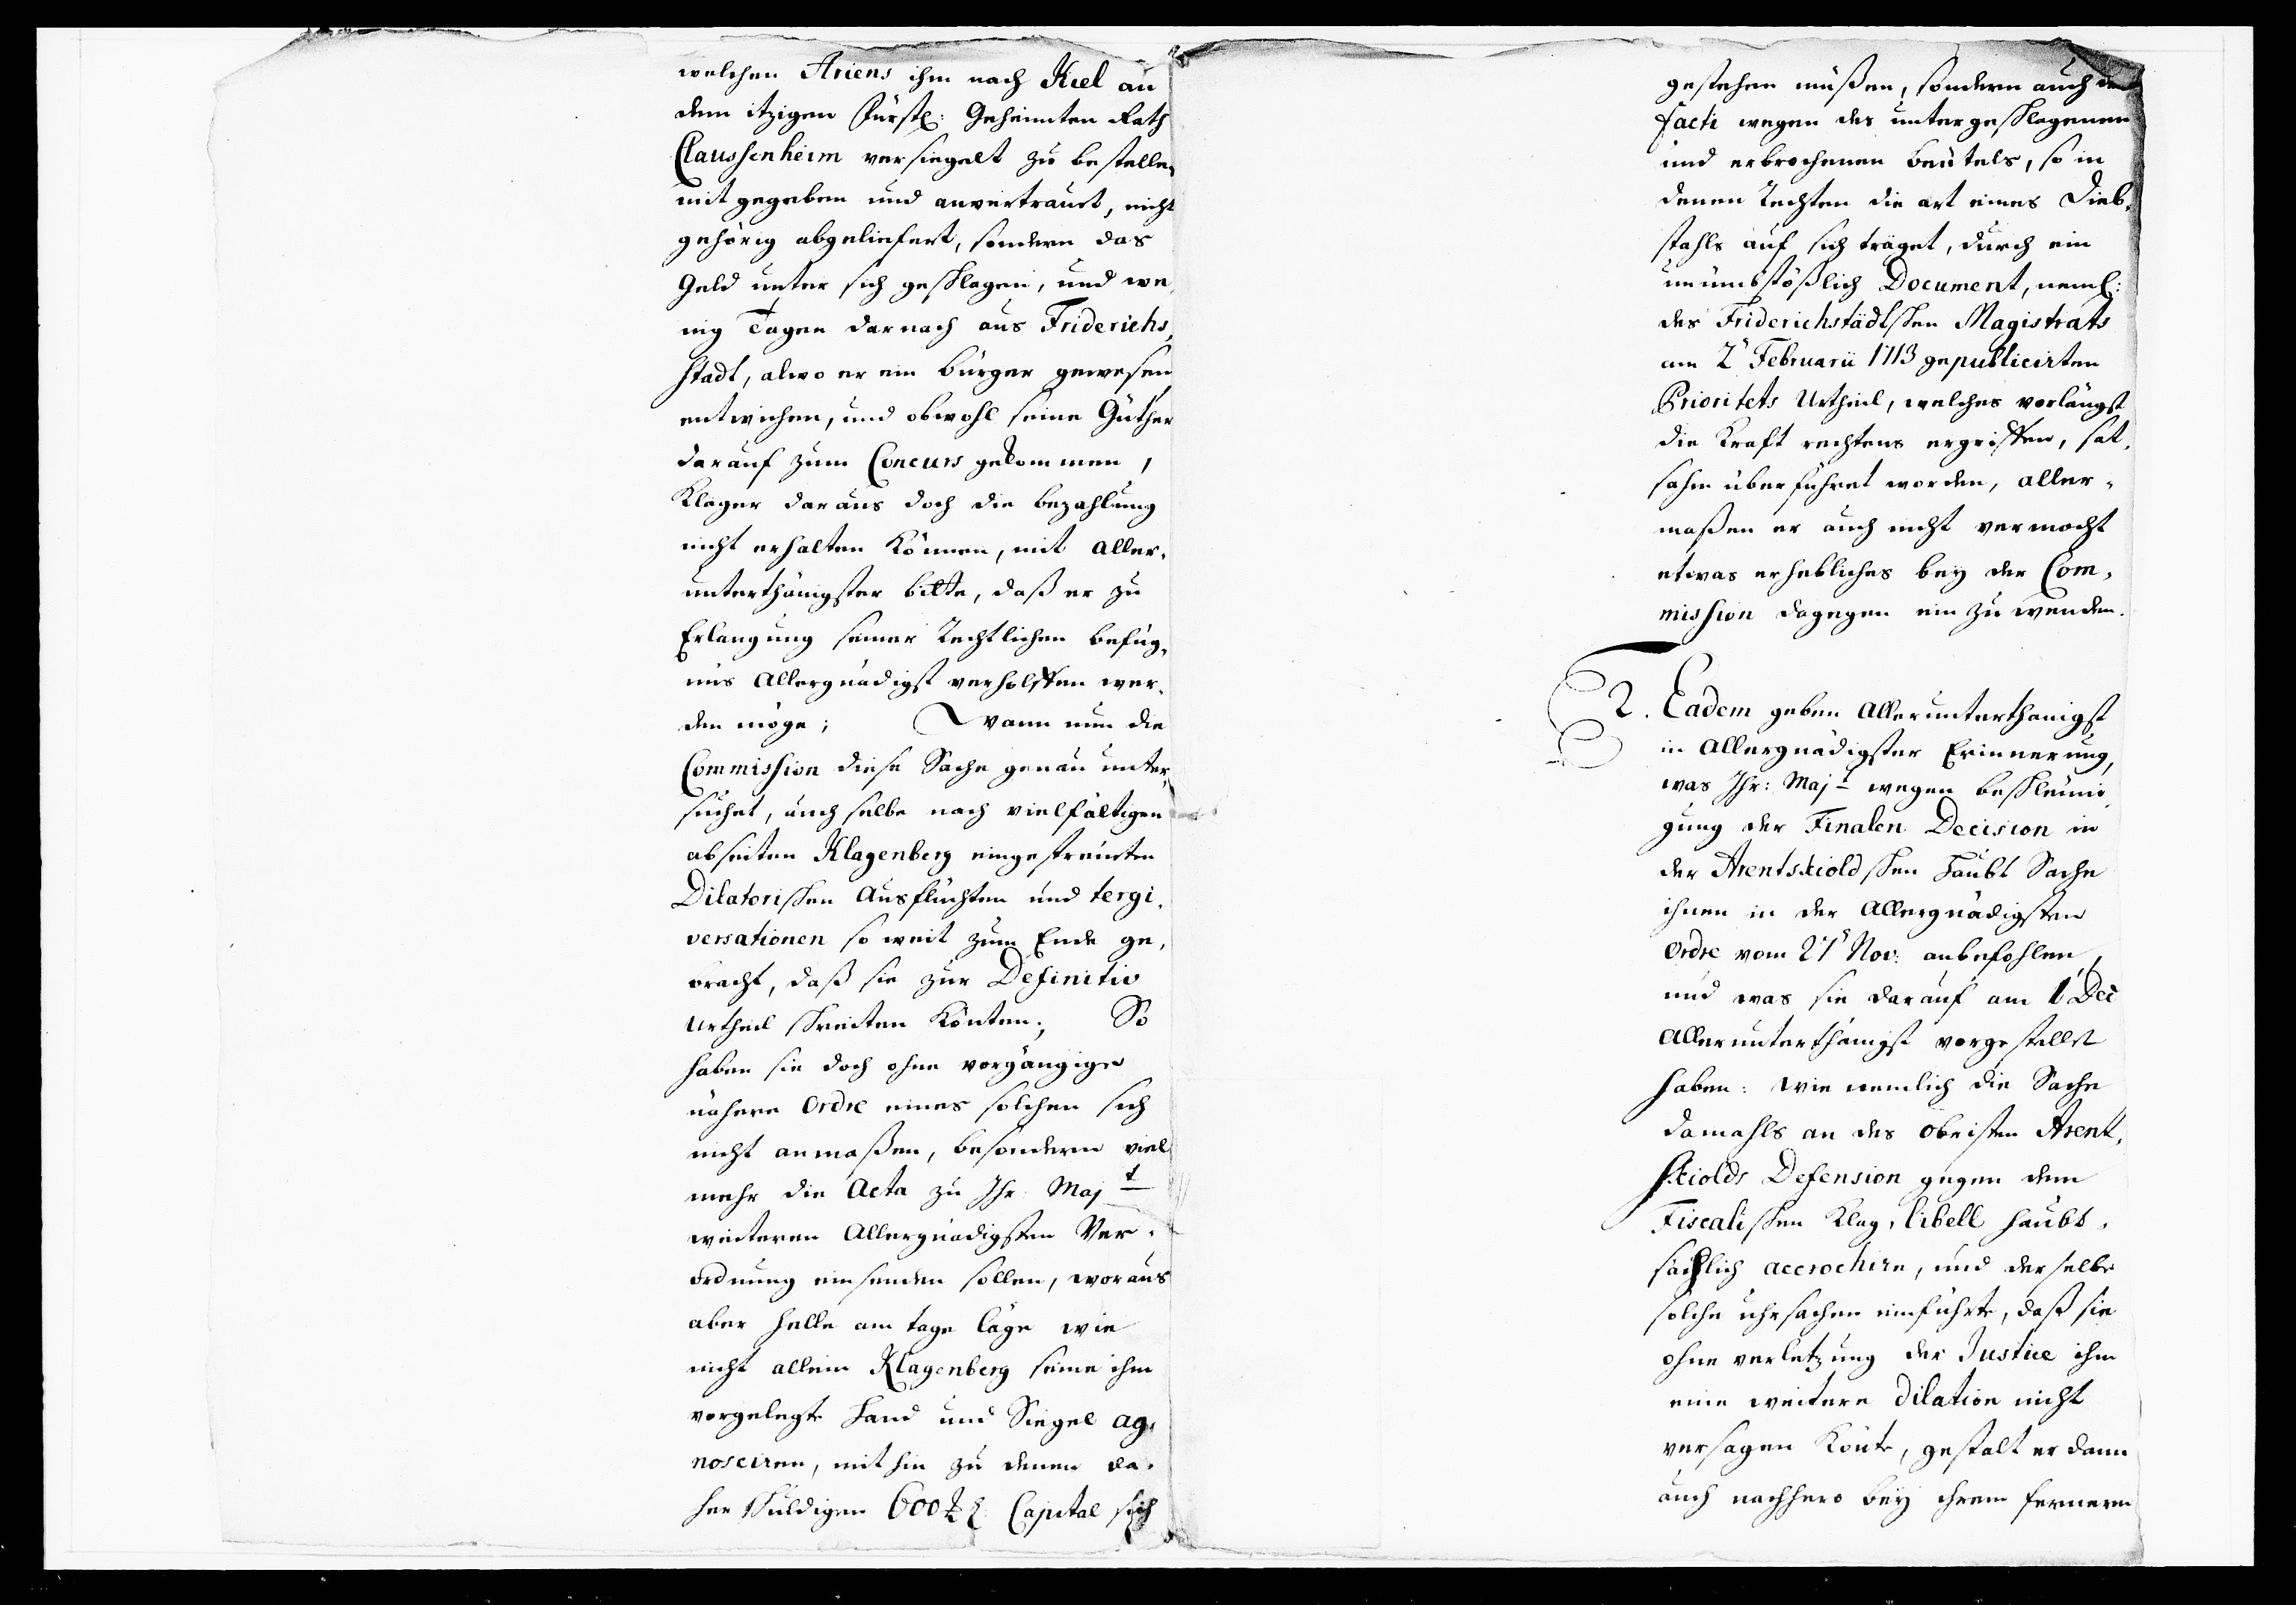 welchen Ariens ihm nach Kiel an
dem itzigen Fürstl: Geheimten Rath
Claussenheim versiegelt zu bestellen
mit gegeben und anvertrauet, nicht
gehörig abgeliefert, sondern das
Geld unter sich geschlagen, und we,
nig Tagen darnach aus Friderichs,
stadt, alwo er ein bürger gewesen
entwichen, und obwohl seine Güther
darauf zum Concurs gekommen,
Kläger daraus doch die bezahlung
nicht erhalten können, mit aller,
unterthänigster bitte, daß er zu
Erlangung seiner Rechtlichen befug,
nis Allergnädigst verholffen wer,
den möge; Wann nun die
Commission diese Sache genau unter,
suchet, auch selbe nach vielfältigen
abseiten Klagenberg eingestreuten
Dilatorischen Ausflüchten und tergi,
versationen so weit zum Ende ge,
bracht, daß sie zur Definitiv
Urtheil schreiten könten; So
haben sie doch ohne vorgängige
nähere Ordre eines solchen sich
nicht anmaßen, besondern viel
mehr die Acta zu Ihr: Majt
weiteren Allergnädigsten Ver,
ordnung einsenden sollen, woraus
aber helle am tage läge wie
nicht allein Klagenberg seine ihm
vorgelegte Hand und Siegel ag,
nosciren, mithin zu denen da,
her schuldigen 600 Capital sich
gestehen müßen, sondern auch des
facti wegen des untergeschlagenen
und erbrochenen beutels, so in
denen Rechten die art eines Dieb,
stahls auf sich träget, durch ein
unümbstößlich Document, neml:
des Friderichstädtschen Magistrats
am 2t Februarii 1713 gepublicirten
Prioritets Urtheil, welches vorlängst
die Kraft rechtens ergriffen, sat,
sahm überführet worden, aller,
maßen er auch nicht vermocht
etwas erhebliches bey der Com,
mission dagegen ein zu wenden.
2. Eadem geben Allerunterthänigst
in Allergnädigster Erinnerung,
was Ihr: Majt wegen beschleuni,
gung der Finalen Decision in
der Arentskioldschen Haubt Sache
ihnen in der Allergnädigsten
Ordre vom 27t Nov: anbefohlen,
und was sie darauf am 1 Dec
Allerunterthänigst vorgestellet
haben: wie nemlich die Sache
damahls an des Obristen Arent,
skiolds Defension gegen dem
Fiscalischen Klag, libell haubt,
sächlich accrochire, und derselbe
solche uhrsachen einführte, daß sie
ohne verletzung der Justice ihm
eine weitere dilation nicht
versagen könte, gestalt er dann
auch nachhero bey ihrem fernern